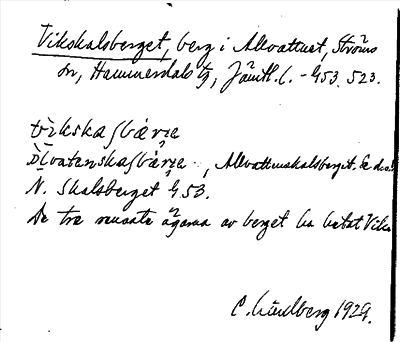 Vikskalsberget, berg i Allvattnet, Ströms
sn, Hammerdals tg, Jämtl. l. - 453. 523.
vikskaʃbärʒe
, Allvattenskalsberget. Se detta
N. Skalsberget 453.
De tre senaste ägarna av berget ha hetat Viks
C. Lindberg 1929.